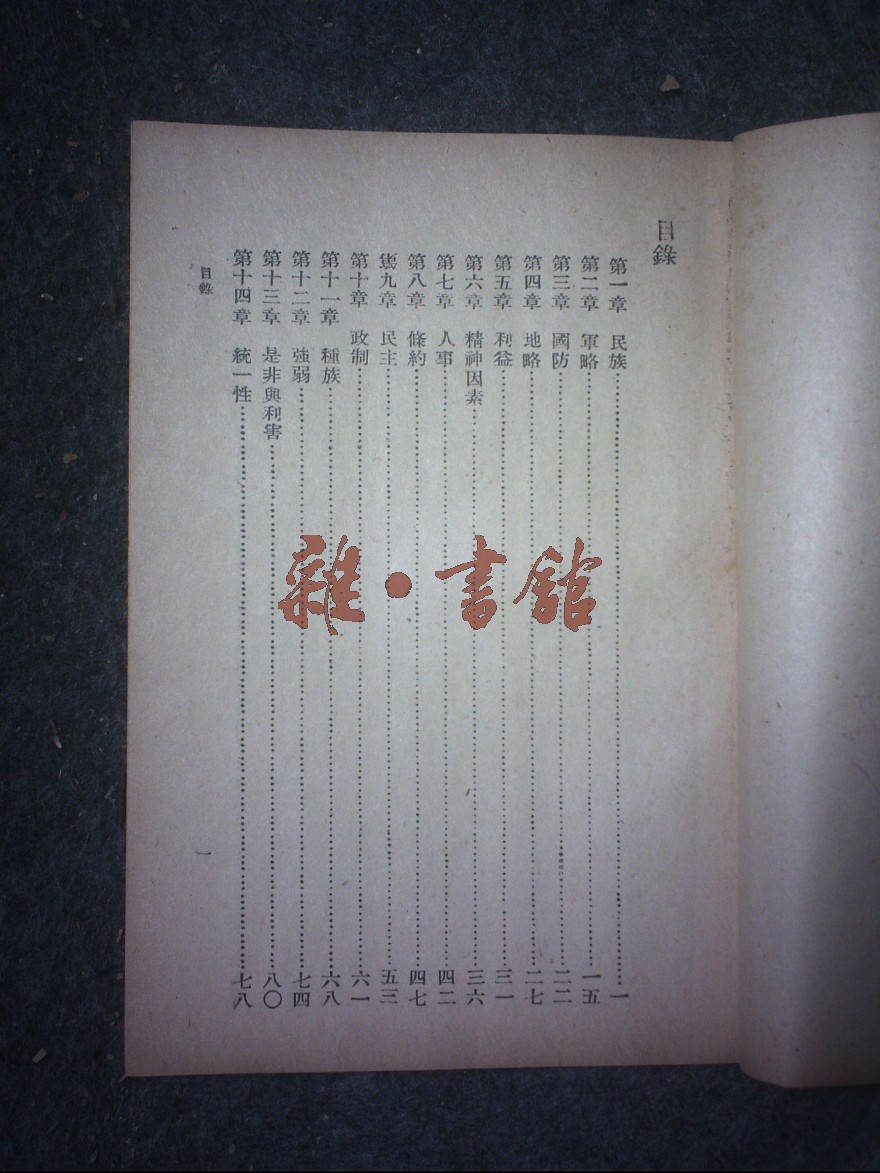 目錄
第一章 民族……一
第二章 軍略……一五
第三章 國防……二二
第四章 地略……二七
第五章 利益……三一
第六章 精神因素……三六
第七章 人事……四二
第八章 條約……四七
第九章 民主……五三
第十章 政制……六一
第十一章 種族……六八
第十二章 強弱……七四
第十三章 是非與利害……八〇
第十四章 統一性……七八
目錄
一
雜·書館